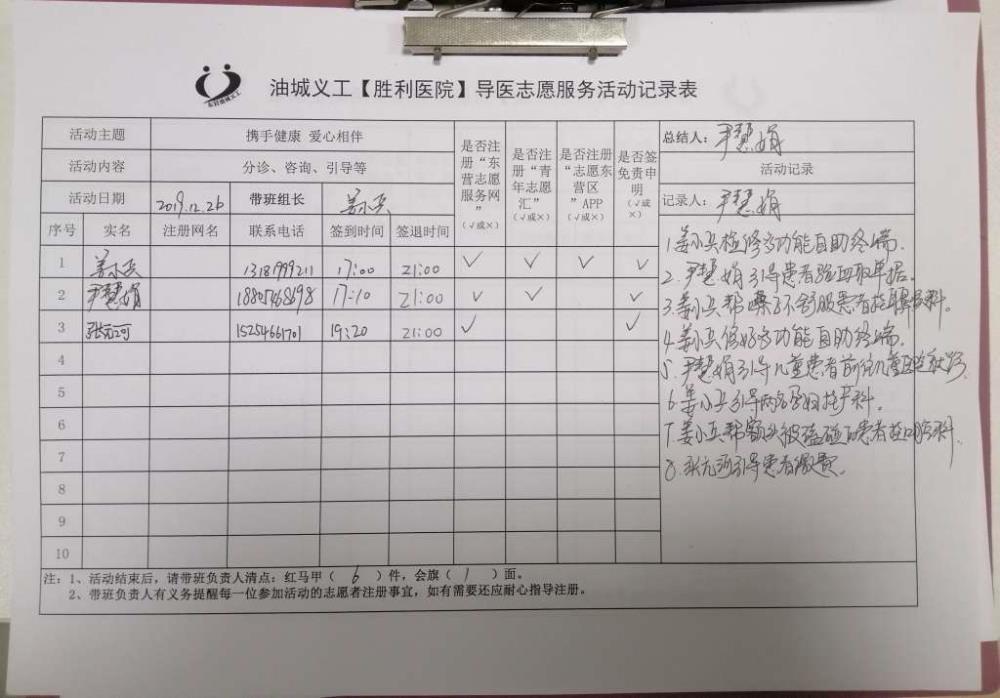 油城义工【胜利医院】导医志愿服务活动记录表
东营油城义工
活动主题 携手健康 爱心相伴
活动内容 分诊、咨询、引导等
活动日期 2019.12.26 带班组长 姜小兵
是否注册“东营志愿服务网”(√或×)
是否注册“青年志愿汇”(√或×)
是否注册“志愿东营区”APP(√或×)
是否签免责申明(√或×)
总结人：尹慧娟
活动记录
记录人：尹慧娟
序号 实名 注册网名 联系电话 签到时间 签退时间
1 姜小兵 17:00 21:00 √ √ √ √
2 尹慧娟 18805468698 17:10 21:00 √ √ √
3 张元河 15254661701 19:20 21:00 √ √
4
5
6
7
8
9
10
1.姜小兵检修多功能自助终端.
2.尹慧娟引导患者验血取单据.
3.姜小兵帮嗓子不舒服患者找耳鼻喉科.
4.姜小兵修好多功能自助终端.
5.尹慧娟引导儿童患者前往儿童
6.姜小兵引导两名孕妇找产科.
7.姜小兵帮额头被磕碰的患者
8.张元河引导患者缴费.
注：1、活动结束后，请带班负责人清点：红马甲（ 6 ）件，会旗（ 1 ）面。
2、带班负责人有义务提醒每一位参加活动的志愿者注册事宜，如有需要还应耐心指导注册。